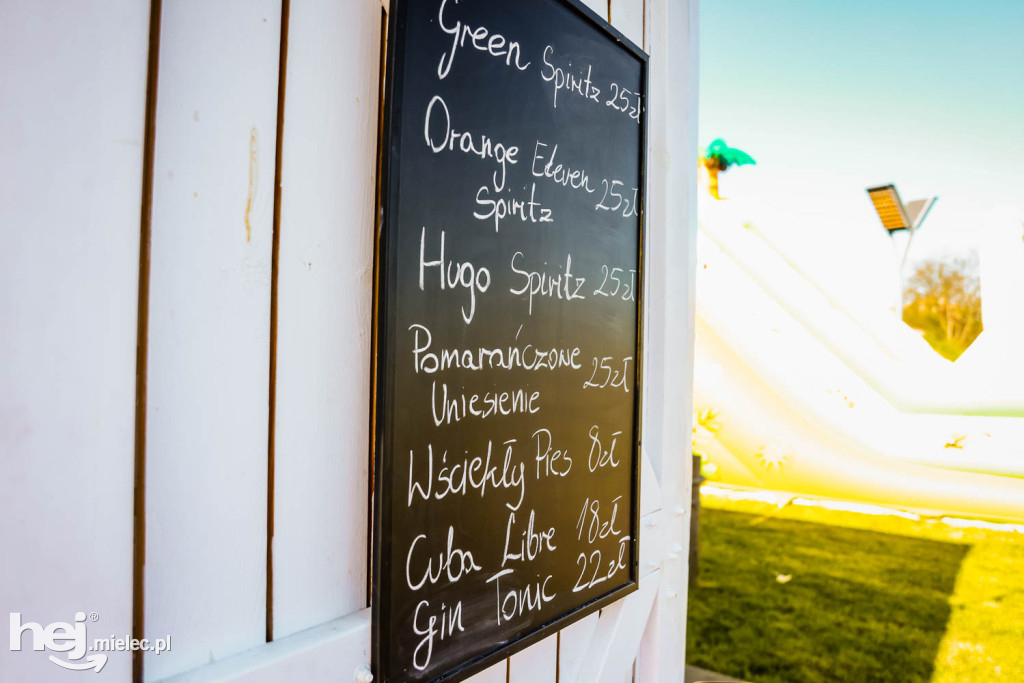 Green Spiritz 25zł
Orange Edeven 25zł
Spiritz
Hugo Spiritz 25zł
Pomarańczowe
Uniesienie 25zł
Wściekły Pies 8zł
Cuba Libre 18zł
Gin Tonic 22zł
hej.mielec.pl